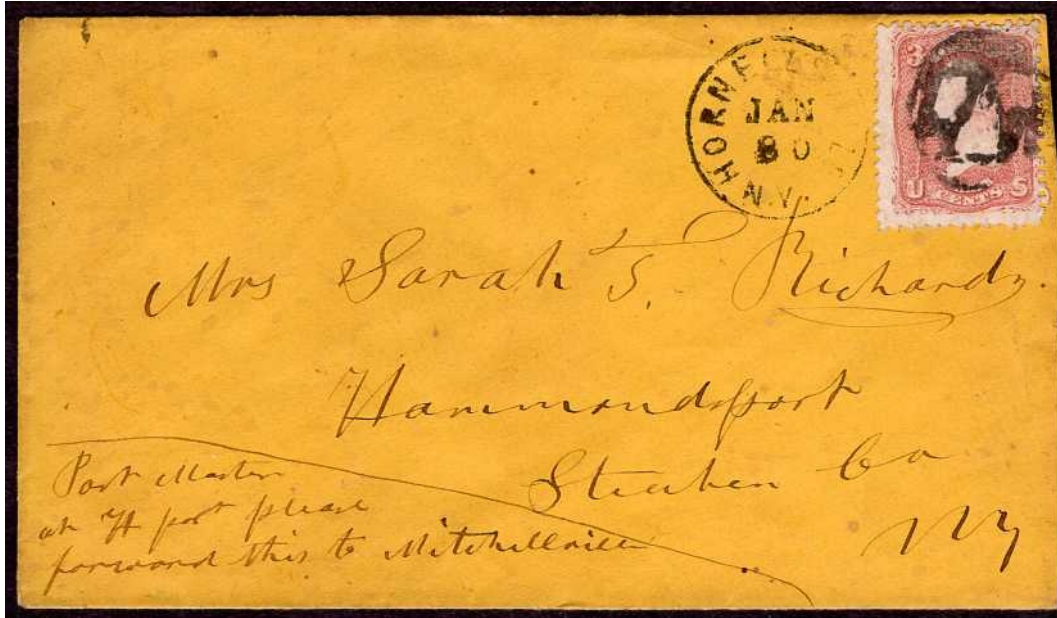 HORNELLS
N.Y.
JAN
30
3
U CENTS S
Mrs Sarah T. Richards.
Hammondsport
Steuben Co
NY
Post Master
at H port please
forward this to Mitchellville